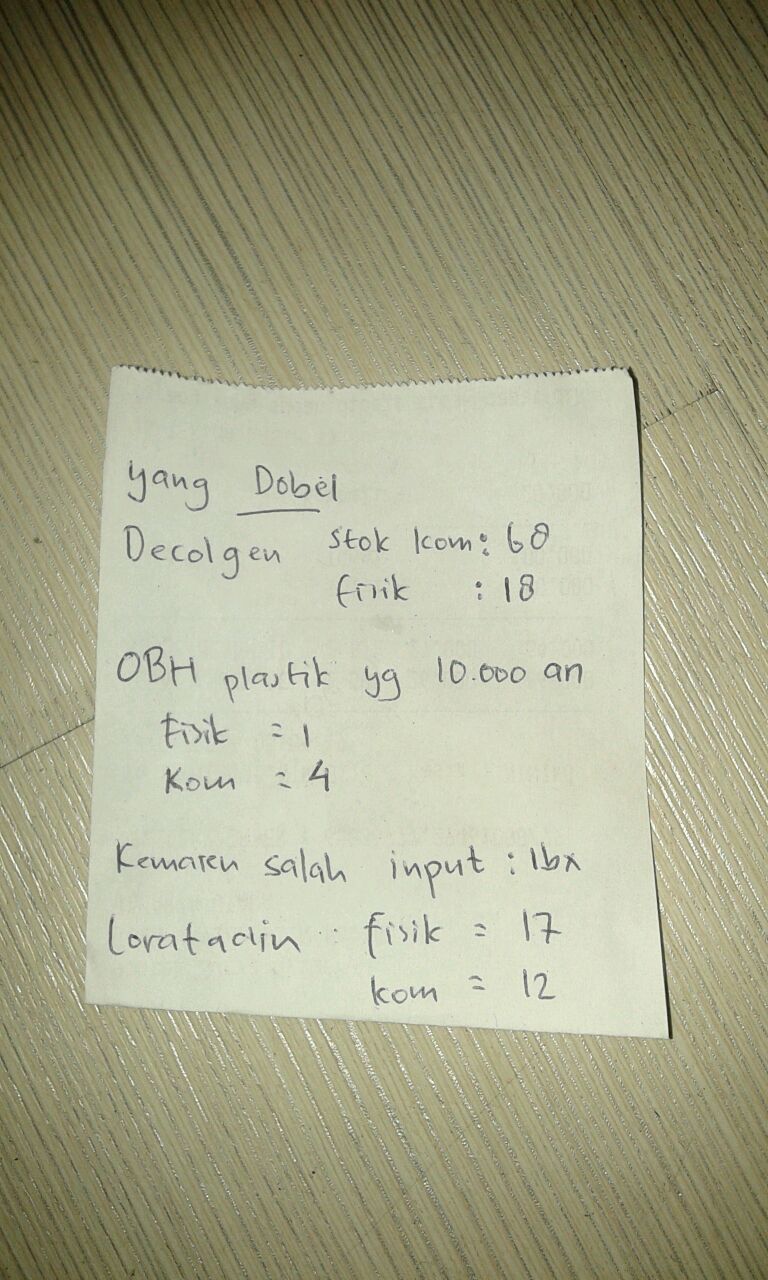 yang Dobel
Decolgen stok kom: 68
fisik : 18
OBH plastik yg 10.000 an
Fisik = 1
Kom = 4
Kemaren salah input : 1bx
Loratadin fisik = 17
kom = 12